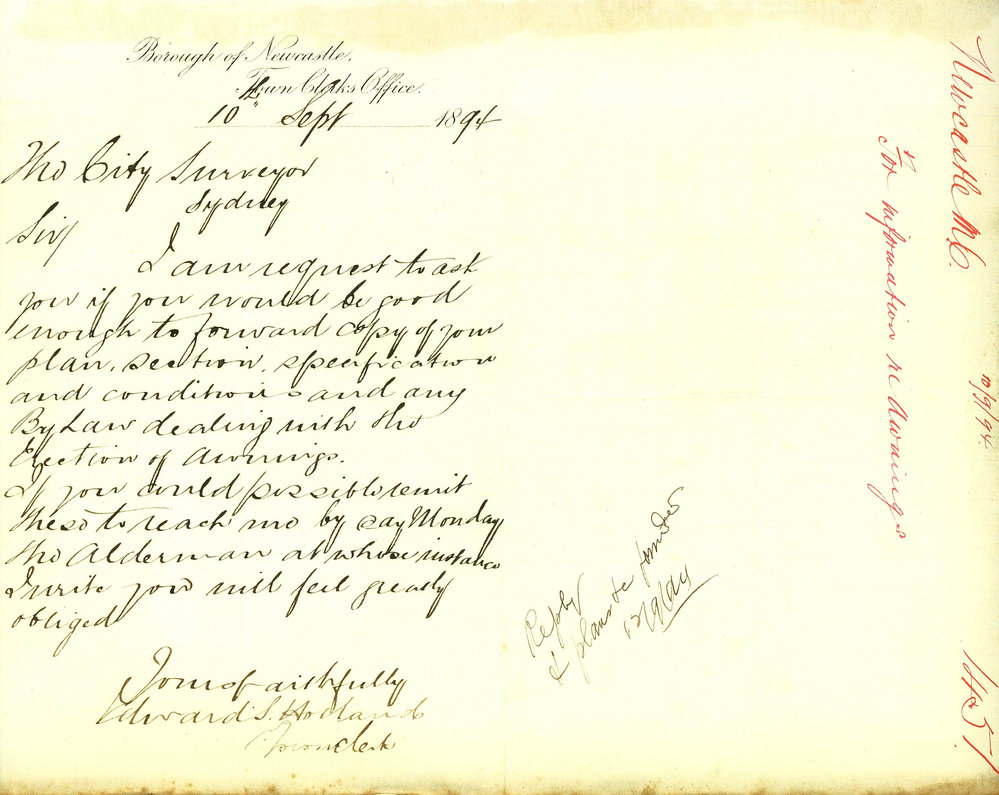 Borough of Newcastle.
Town Clerks Office.
10th Sept 1894
The City Surveyor
Sydney
Sir
I am request to ask
you if you would be good
enough to forward copy of your
plan, section, specification
and conditions and any
By Law dealing with the
Erection of Awnings.
If you could possible remit
these to reach me by say Monday
the Alderman at whose instance
I write you will feel greatly
obliged
Yours faithfully
Edward S. Holland
Town clerk
Reply
& plans &c forwded
12/9/94
Newcastle M.C.
10/9/94
For information re Awnings